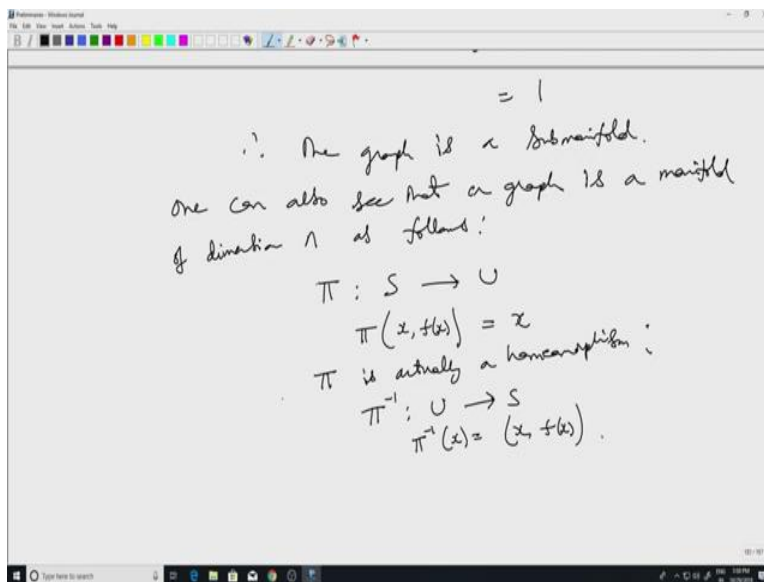 Preliminaries - Windows Journal
File Edit View Insert Actions Tools Help
= 1
∴ The graph is a submanifold.
One can also see that a graph is a manifold
of dimension n as follows:
π : S → U
π(x, f(x)) = x
π is actually a homeomorphism :
π⁻¹ : U → S
π⁻¹(x) = (x, f(x)).
Type here to search
ENG